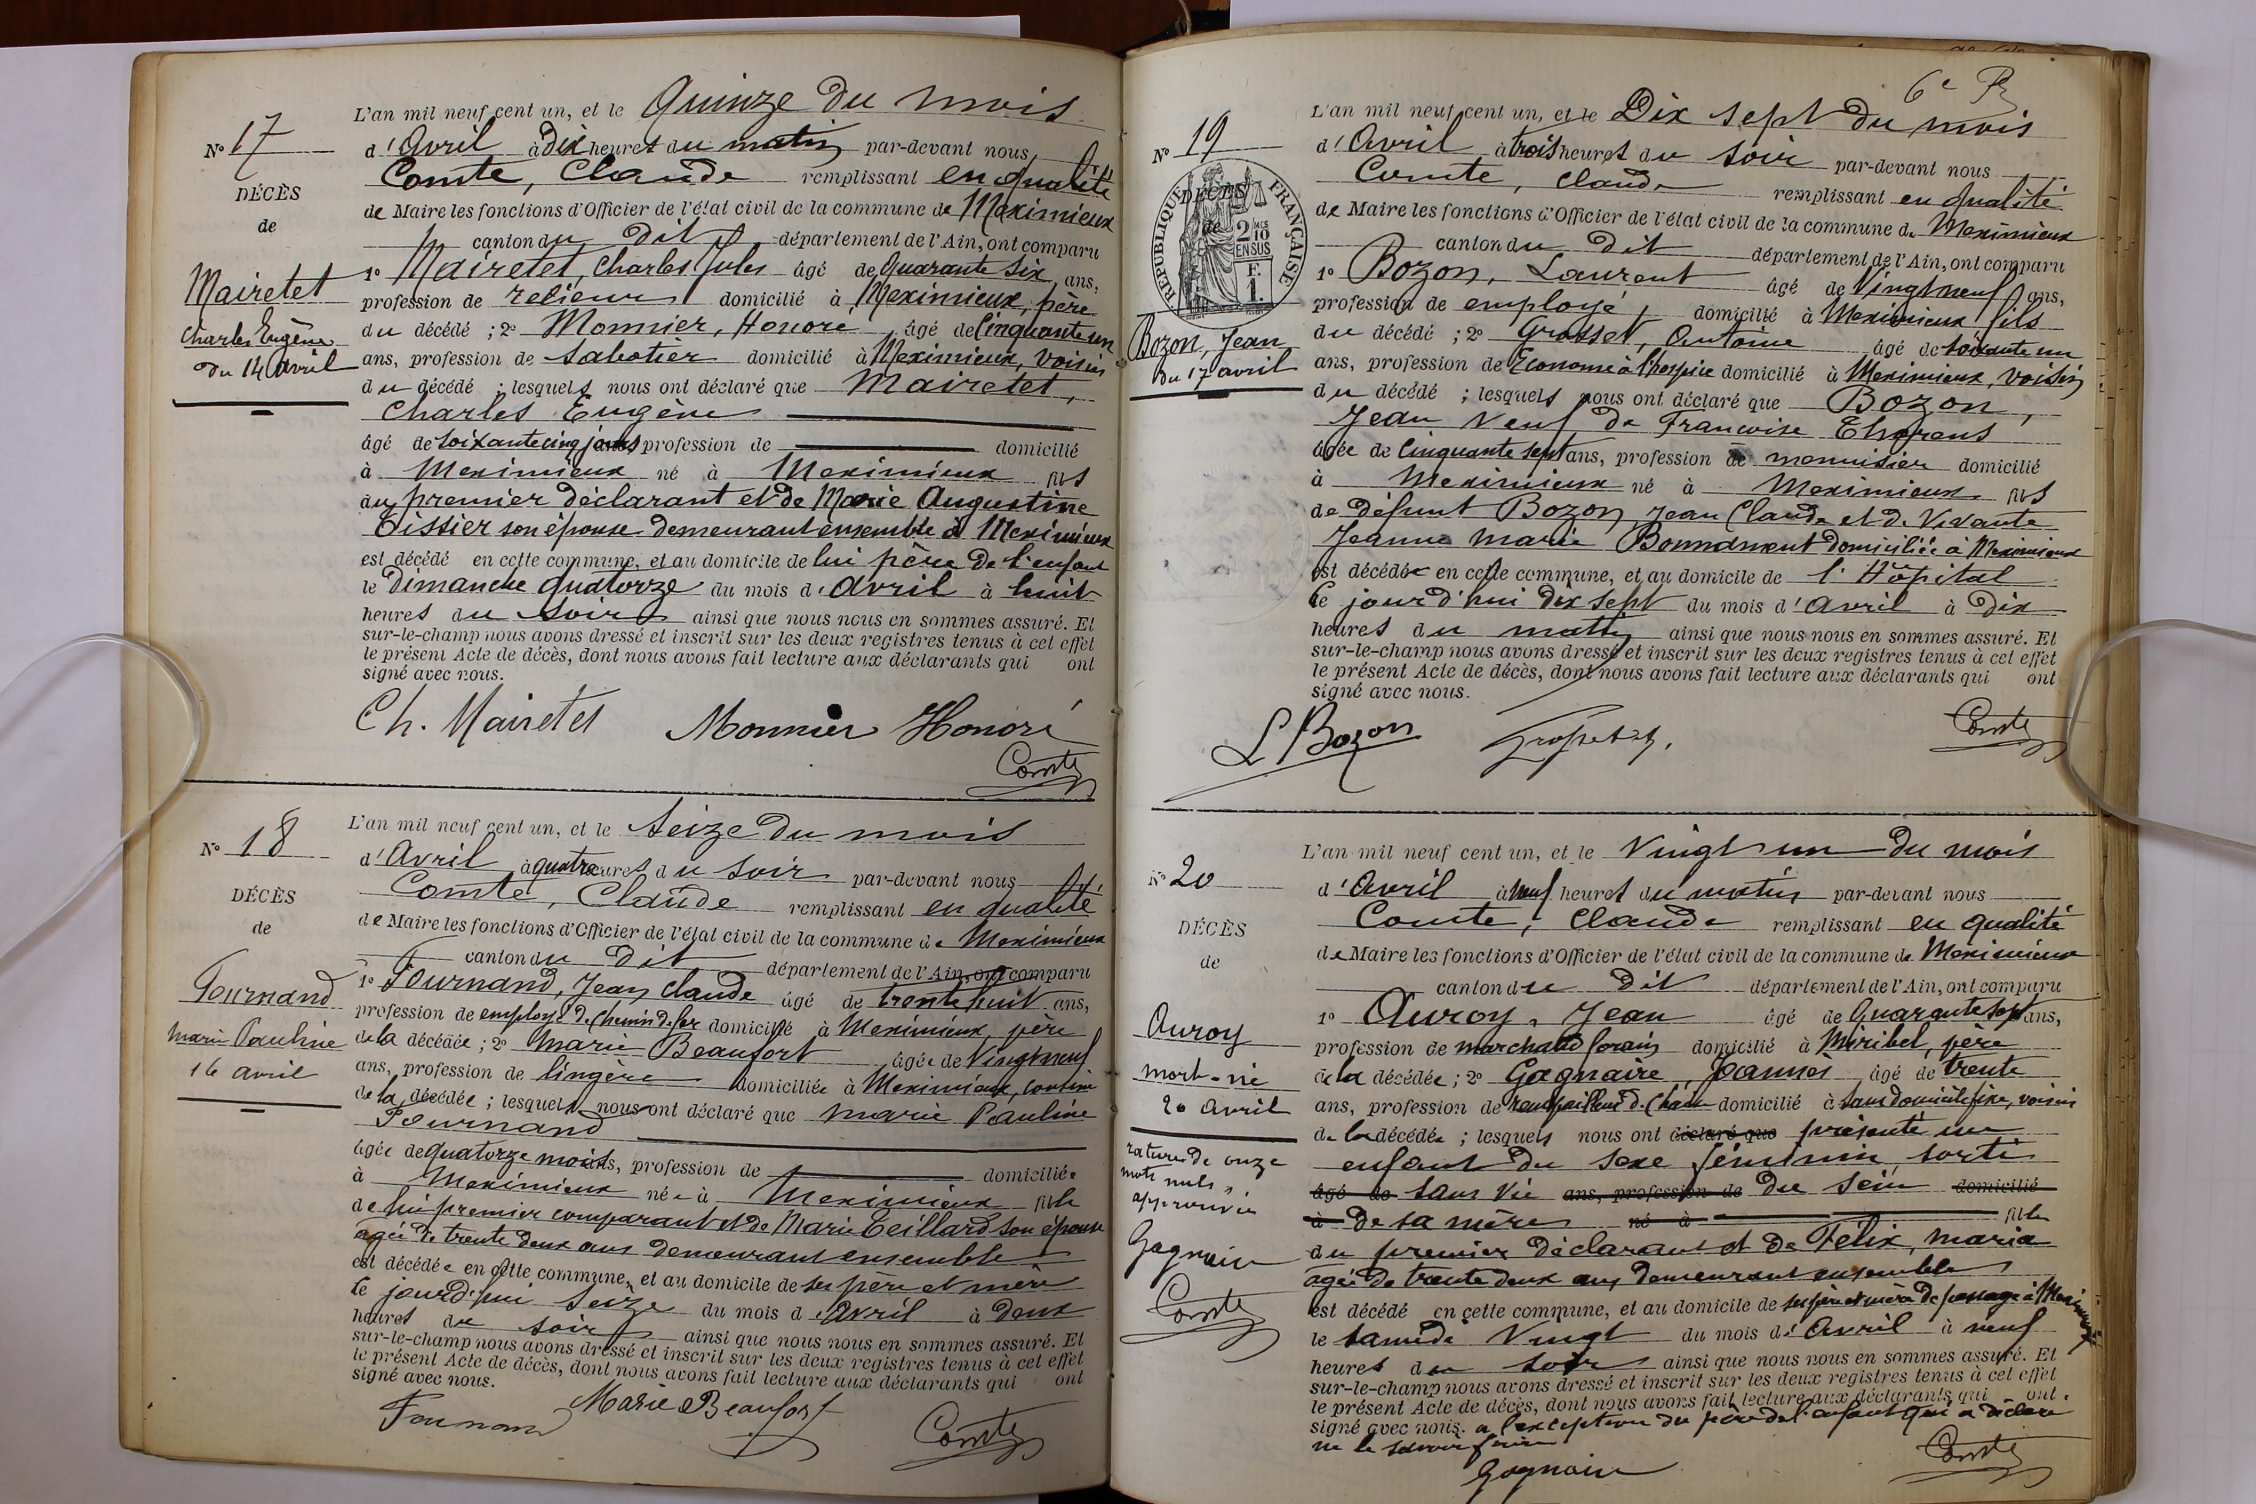 N° 17
DÉCÈS
de
Mairetet
Charles Eugène
du 14 avril
L'an mil neuf cent un, et le Quinze du mois
d'Avril à Dix heures du matin par-devant nous
Comte, Claude remplissant en qualité
de Maire les fonctions d'Officier de l'état civil de la commune de Meximieux
canton du Dit département de l'Ain, ont comparu
1° Mairetet, Charles Jules âgé de Quarante six ans,
profession de relieur domicilié à Meximieux, père
du décédé ; 2° Monnier, Honoré âgé de Cinquante un
ans, profession de sabotier domicilié à Meximieux, voisin
du décédé ; lesquels nous ont déclaré que Mairetet,
Charles Eugène
âgé de soixante cinq jours profession de domicilié
à Meximieux né à Meximieux fils
du premier déclarant et de Marie Augustine
Tissier son épouse demeurant ensemble à Meximieux
est décédé en cette commune, et au domicile de lui père de l'enfant
le Dimanche quatorze du mois d'Avril à huit
heures du soir ainsi que nous nous en sommes assuré. Et
sur-le-champ nous avons dressé et inscrit sur les deux registres tenus à cet effet
le présent Acte de décès, dont nous avons fait lecture aux déclarants qui ont
signé avec nous.
Ch. Mairetet Monnier Honoré
Comte
N° 18
DÉCÈS
de
Fournand
Marie Pauline
16 avril
L'an mil neuf cent un, et le Seize du mois
d'Avril à quatre heures du soir par-devant nous
Comte, Claude remplissant en qualité
de Maire les fonctions d'Officier de l'état civil de la commune de Meximieux
canton du Dit département de l'Ain, ont comparu
1° Fournand, Jean Claude âgé de trente huit ans,
profession de employé de chemin de fer domicilié à Meximieux, père
de la décédée ; 2° Marie Beaufort âgée de Vingt neuf
ans, profession de lingère domiciliée à Meximieux, cousine
de la décédée ; lesquels nous ont déclaré que Marie Pauline
Fournand
âgée de quatorze mois, profession de domiciliée
à Meximieux née à Meximieux fille
de lui premier comparant et de Marie Teillard son épouse
agée de trente deux ans demeurant ensemble
est décédée en cette commune, et au domicile de ses père et mère
le jourd'hui Seize du mois d'Avril à deux
heures du soir ainsi que nous nous en sommes assuré. Et
sur-le-champ nous avons dressé et inscrit sur les deux registres tenus à cet effet
le présent Acte de décès, dont nous avons fait lecture aux déclarants qui ont
signé avec nous.
Fournand Marie Beaufort Comte
6e
N° 19
DÉCÈS
de
RÉPUBLIQUE FRANÇAISE
2 MES 10
EN SUS
F.
1.
Bozon, Jean
du 17 avril
L'an mil neuf cent un, et le Dix sept du mois
d'Avril à trois heures du soir par-devant nous
Comte, Claude remplissant en qualité
de Maire les fonctions d'Officier de l'état civil de la commune de Meximieux
canton du Dit département de l'Ain, ont comparu
1° Bozon, Laurent âgé de Vingt neuf ans,
profession de employé domicilié à Meximieux, fils
du décédé ; 2° Grosset, Antoine âgé de soixante un
ans, profession de Econome à l'hospice domicilié à Meximieux, voisin
du décédé ; lesquels nous ont déclaré que Bozon,
Jean Veuf de Francoise Thorens
âgée de Cinquante sept ans, profession de menuisier domicilié
à Meximieux né à Meximieux fils
de défunt Bozon, Jean Claude et de Vivante
Jeanne Marie Bonnament domiciliée à Meximieux
est décédé en cette commune, et au domicile de l'Hôpital
le jourd'hui dix sept du mois d'avril à Dix
heures du matin ainsi que nous nous en sommes assuré. Et
sur-le-champ nous avons dressé et inscrit sur les deux registres tenus à cet effet
le présent Acte de décès, dont nous avons fait lecture aux déclarants qui ont
signé avec nous.
L Bozon Comte
N° 20
DÉCÈS
de
Auroy
mort-né
20 Avril
rature de onze
mots nuls
approuvée
Gagnaire
Comte
L'an mil neuf cent un, et le Vingt un du mois
d'Avril à neuf heures du matin par-devant nous
Comte, Claude remplissant en qualité
de Maire les fonctions d'Officier de l'état civil de la commune de Meximieux
canton du Dit département de l'Ain, ont comparu
1° Auroy, Jean âgé de Quarante sept ans,
profession de marchand forain domicilié à Miribel, père
de la décédée ; 2° Gagnaire, Joannès âgé de trente
ans, profession de rempailleur de Chaise domicilié à sans domicile fixe, voisin
de la décédée ; lesquels nous ont déclaré que présenté un
enfant du sexe féminin, sorti
âgé de sans vie ans, profession de du sein domicilié
à de sa mère né à fille
du premier déclarant et de Félix, Maria
agée de trente deux ans demeurant ensemble
est décédé en cette commune, et au domicile de ses père et mère de passage à Meximieux
le samedi Vingt du mois d'Avril à neuf
heures du soir ainsi que nous nous en sommes assuré. Et
sur-le-champ nous avons dressé et inscrit sur les deux registres tenus à cet effet
le présent Acte de décès, dont nous avons fait lecture aux déclarants qui ont
signé avec nous. a l'exception du père de l'enfant qui a déclaré
ne le savoir faire
Gagnaire Comte